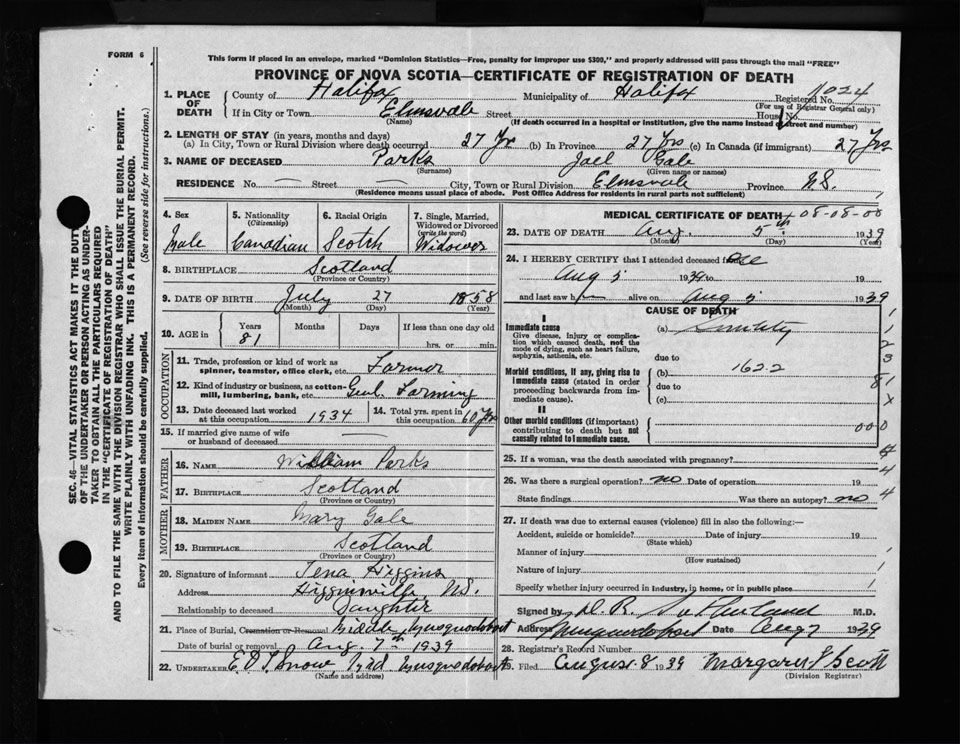 FORM 6
This form if placed in an envelope, marked "Dominion Statistics—Free, penalty for improper use $300," and properly addressed will pass through the mail "FREE"
PROVINCE OF NOVA SCOTIA—CERTIFICATE OF REGISTRATION OF DEATH
SEC. 46—VITAL STATISTICS ACT MAKES IT THE DUTY
OF THE UNDERTAKER OR PERSON ACTING AS UNDER-
TAKER TO OBTAIN ALL THE PARTICULARS REQUIRED
IN THE "CERTIFICATE OF REGISTRATION OF DEATH"
AND TO FILE THE SAME WITH THE DIVISION REGISTRAR WHO SHALL ISSUE THE BURIAL PERMIT.
WRITE PLAINLY WITH UNFADING INK. THIS IS A PERMANENT RECORD.
Every item of information should be carefully supplied. (See reverse side for instructions.)
1. PLACE OF DEATH County of Halifax Municipality of Halifax Registered No. 1024
(For use of Registrar General only)
If in City or Town Elmsvale Street House No.
(Name) (If death occurred in a hospital or institution, give the name instead of street and number)
2. LENGTH OF STAY (in years, months and days)
(a) In City, Town or Rural Division where death occurred 27 Yr (b) In Province 27 Yrs (c) In Canada (if immigrant) 27 Yrs
3. NAME OF DECEASED Parks Jael Gale
(Surname) (Given name or names)
RESIDENCE No. — Street City, Town or Rural Division Elmsvale Province N.S.
(Residence means usual place of abode. Post Office Address for residents in rural parts not sufficient)
4. Sex Male
5. Nationality (Citizenship) Canadian
6. Racial Origin Scotch
7. Single, Married, Widowed or Divorced (write the word) Widower
8. BIRTHPLACE Scotland
(Province or Country)
9. DATE OF BIRTH July 27 1858
(Month) (Day) (Year)
10. AGE in Years 81 Months Days If less than one day
hrs. or min.
OCCUPATION
11. Trade, profession or kind of work as spinner, teamster, office clerk, etc. Farmer
12. Kind of industry or business, as cotton-mill, lumbering, bank, etc. Genl. Farming
13. Date deceased last worked at this occupation 1934
14. Total yrs. spent in this occupation 60 Yrs
15. If married give name of wife or husband of deceased —
FATHER
16. NAME William Parks
17. BIRTHPLACE Scotland
(Province or Country)
MOTHER
18. MAIDEN NAME Mary Gale
19. BIRTHPLACE Scotland
(Province or Country)
20. Signature of informant Tena Higgins
Address Higginsville, N.S.
Relationship to deceased Daughter
21. Place of Burial, Cremation or Removal Middle Musquodoboit
Date of burial or removal Aug. 7th 1939
22. UNDERTAKER Mid Musquodoboit
(Name and address)
MEDICAL CERTIFICATE OF DEATH + 08-08-00
23. DATE OF DEATH Aug. 5th 1939
(Month) (Day) (Year)
24. I HEREBY CERTIFY that I attended deceased from
Aug 5 1939 to 19
and last saw h alive on Aug 5 1939
CAUSE OF DEATH
I
Immediate cause (a) Senility
Give disease, injury or complication which caused death, not the mode of dying, such as heart failure, asphyxia, asthenia, etc.
due to
Morbid conditions, if any, giving rise to immediate cause (stated in order proceeding backwards from immediate cause). (b) 162.2
due to
(c)
II
Other morbid conditions (if important) contributing to death but not causally related to immediate cause.
1
1
2
3
81
X
000
25. If a woman, was the death associated with pregnancy?
4
26. Was there a surgical operation? no Date of operation 19
State findings Was there an autopsy? no 4
27. If death was due to external causes (violence) fill in also the following:—
Accident, suicide or homicide? Date of injury 19
(State which)
Manner of injury
(How sustained)
Nature of injury
Specify whether injury occurred in industry, in home, or in public place
Signed by D. R. M.D.
Address Date Aug 7 1939
28. Registrar's Record Number
29. Filed August 8 1939 Margaret Scott
(Division Registrar)